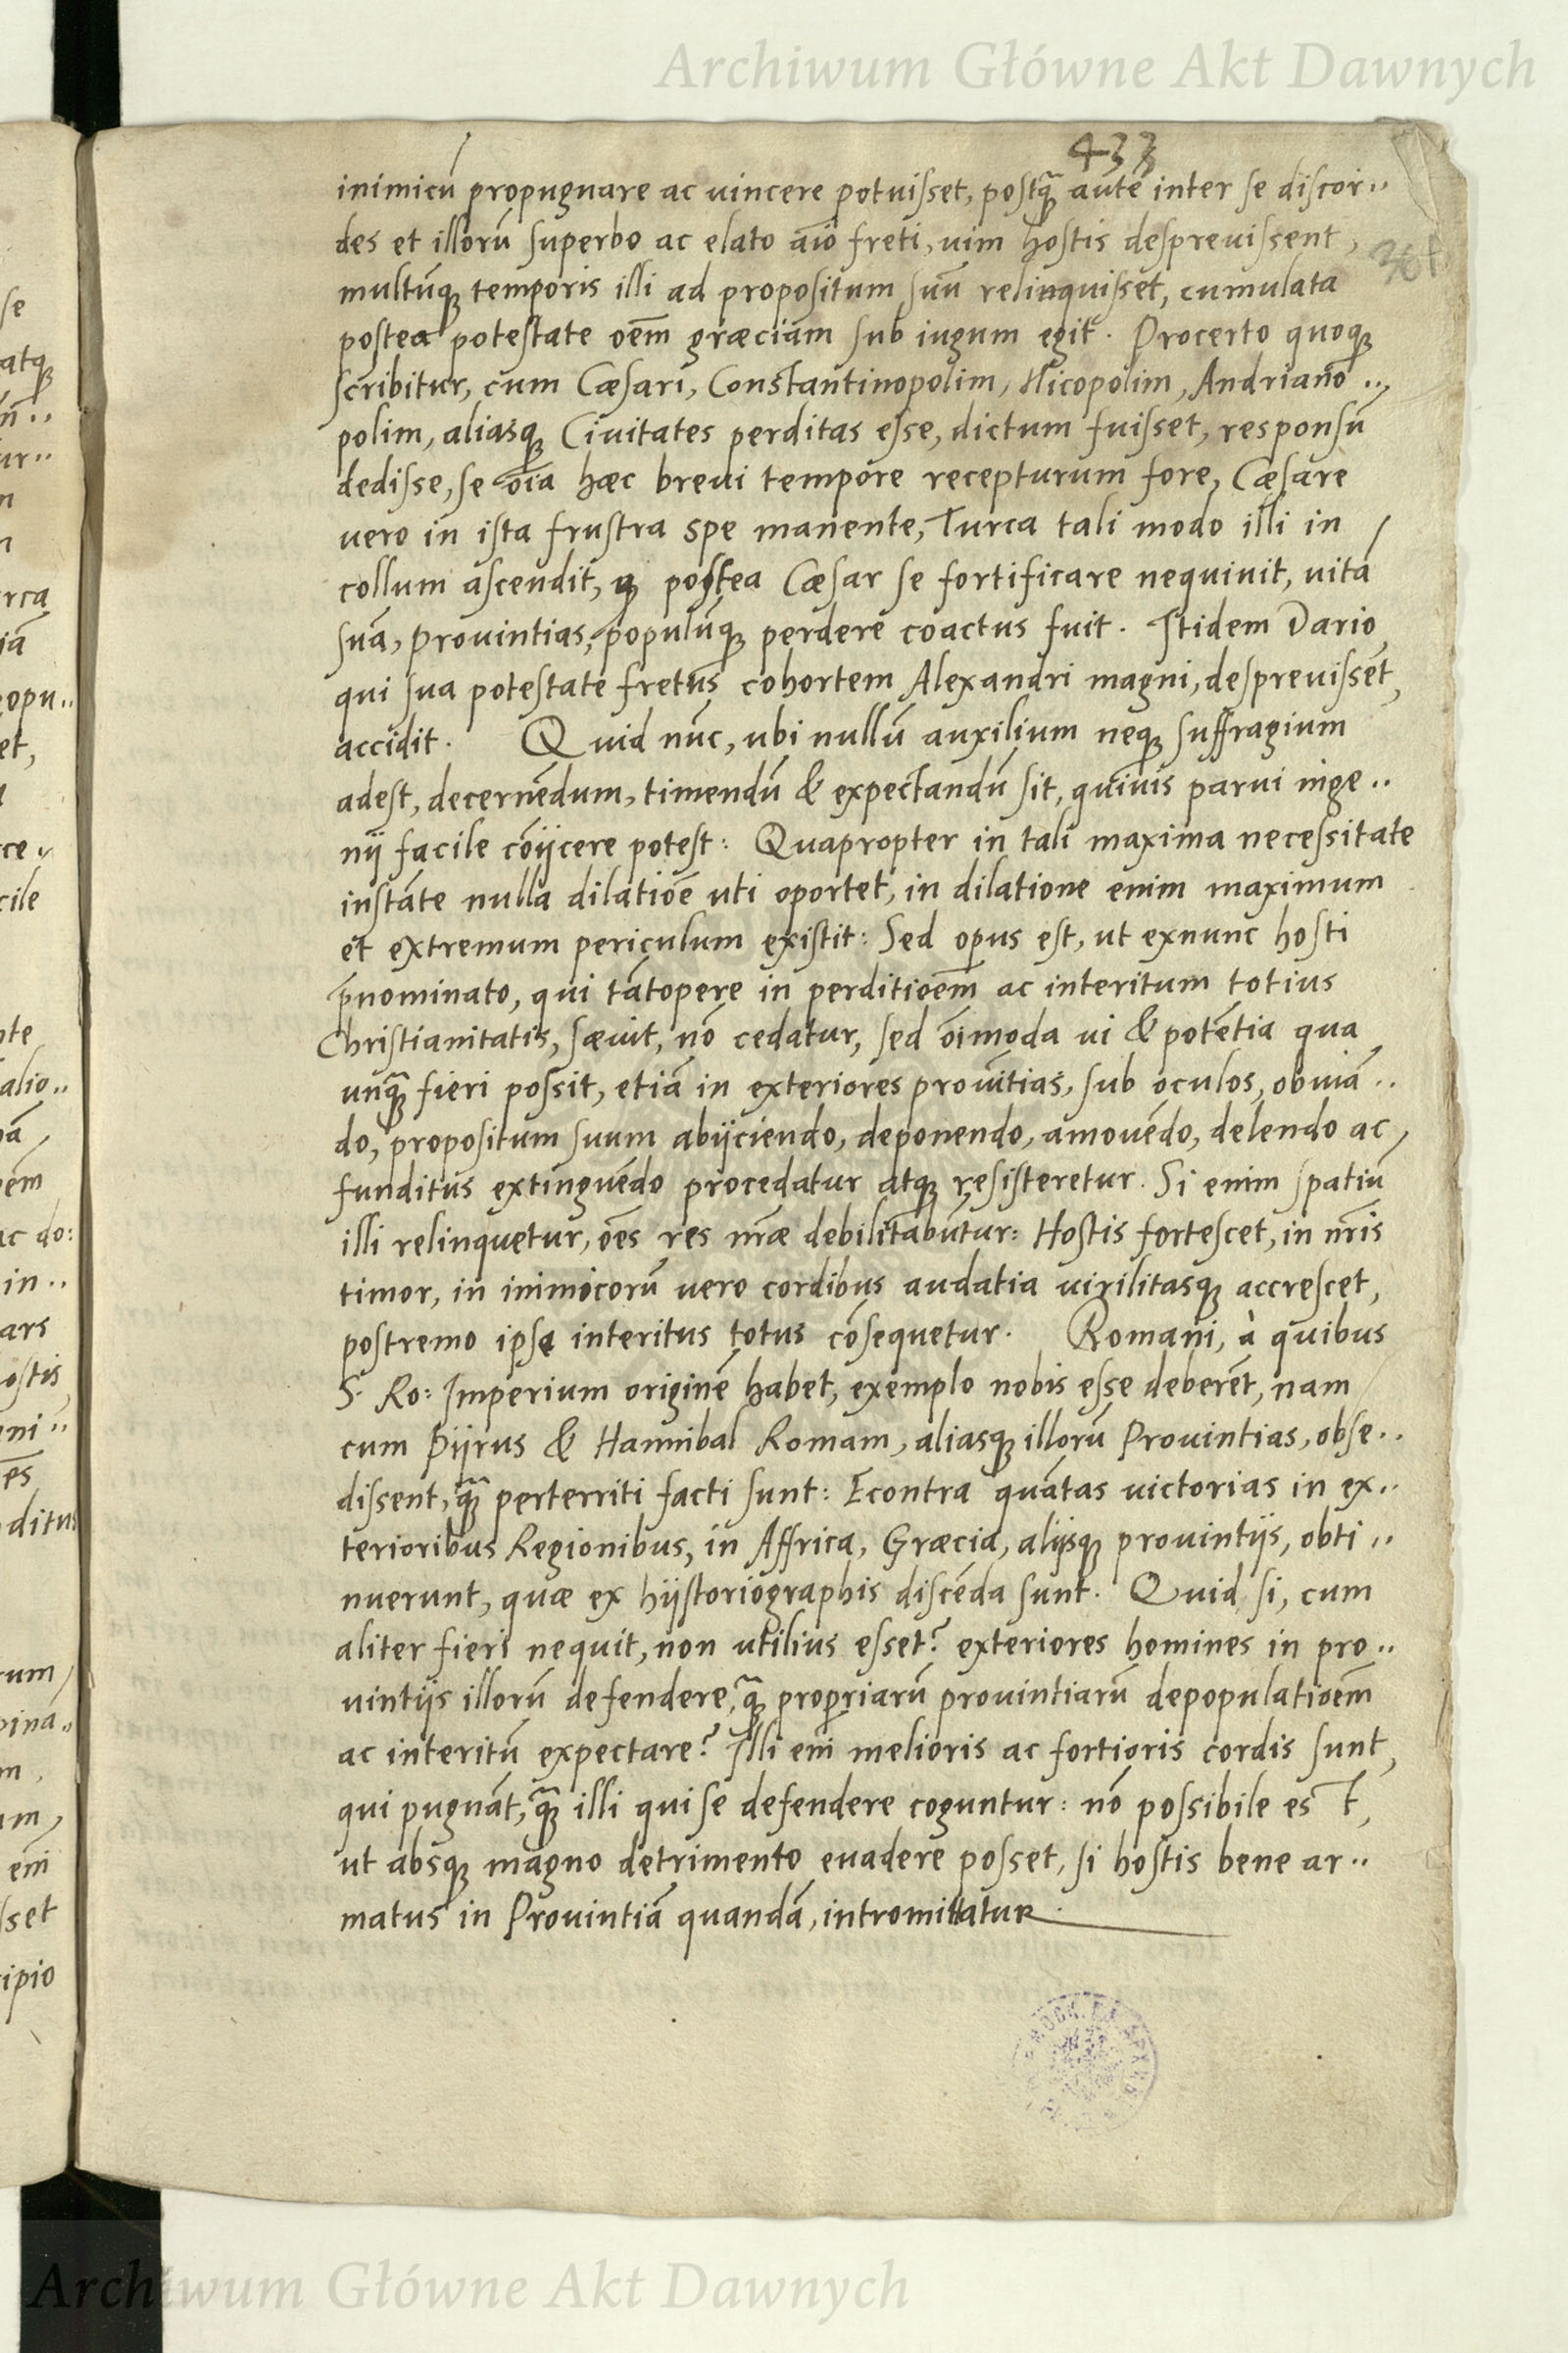 Archiwum Główne Akt Dawnych
433
inimicū propugnare ac uincere potuisset, postq̄ȝ autē inter se discor..
des et illorū superbo ac elato aīo freti, uim hostis despreuissent,
multūqȝ temporis illi ad propositum suū relinquisset, cumulata
postea potestate oēm græciam sub iugum egit. Procerto quoqȝ
scribitur, cum Cæsari, Constantinopolim, Nicopolim, Andriano..,
polim, aliasqȝ Ciuitates perditas esse, dictum fuisset, responsū
dedisse, se oīa hæc breui tempore recepturum fore, Cæsare
vero in ista frustra spe manente, Turca tali modo illi in
collum ascendit, qȝ postea Cæsar se fortificare nequiuit, vitā
suā, prouintias, populūqȝ perdere coactus fuit. Itidem Dario
qui sua potestate fretus cohortem Alexandri magni, despreuissēt,
accidit. Quid nūc, ubi nullū auxilium neqȝ suffragium
adest, decernēdum, timendū & expectandū sit, quiuis parui inge..
nij facile cōijcere potest: Quapropter in tali maxima necessitate
instāte nulla dilatiōe uti oportet, in dilatione enim maximum
et extremum periculum existit: Sed opus est, ut exnunc hosti
p̄nominato, qui tātopere in perditioēm ac interitum totius
Christianitatis, sæuit, nō cedatur, sed oīmoda ui & potētia qua
unq̄ȝ fieri possit, etiā in exteriores prouītias, sub oculos, obuiā..
do, propositum suum abijciendo, deponendo, amouēdo, delendo ac
funditus extinguēdo procedatur atqȝ resisteretur. Si enim spatiū
illi relinquetur, oēs res nr̄æ debilitabūtur: Hostis fortescet, in nr̄is
timor, in inimicorū vero cordibus audatia uirilitasqȝ accrescet,
postremo ipse interitus totus cōsequetur. Romani, à quibus
S. Ro: Imperium originē habet, exemplo nobis esse deberēt, nam
cum Pijrus & Hannibal Romam, aliasqȝ illorū Prouintias, obse..
dissent, q̄ȝ perterriti facti sunt: Econtra quātas uictorias in ex..
terioribus Regionibus, in Affrica, Græcia, alijsqȝ prouintijs, obti..
nuerunt, quæ ex hijstoriographis discēda sunt. Quid si, cum
aliter fieri nequit, non utilius esset? exteriores homines in pro..
uintijs illorū defendere, q̄ȝ propriarū prouintiarū depopulatioēm
ac interitū expectare? Illi enī melioris ac fortioris cordis sunt,
qui pugnāt, q̄ȝ illi qui se defendere coguntur: nō possibile est,
ut absqȝ magno detrimento euadere posset, si hostis bene ar..
matus in Prouintiā quandā, intromittatur.
Archiwum Główne Akt Dawnych